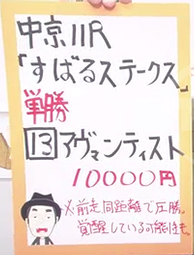 中京11R
「すばるステークス」
単勝
13アヴァンティスト
10000円
※前走同距離で圧勝。
覚醒している可能性も。